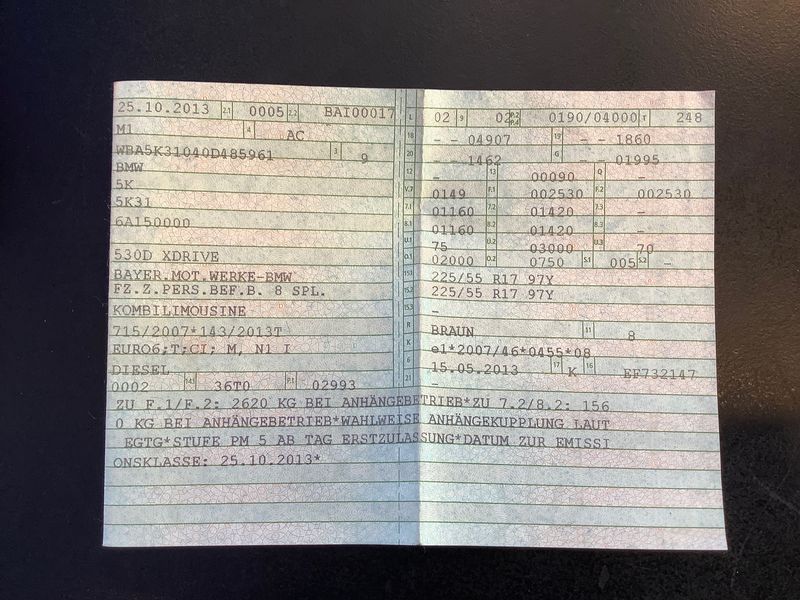 25.10.2013 2.1 0005 2.2 BAI00017
M1 4 AC
WBA5K31040D485961 3 9
BMW
5K
5K31
6A150000
530D XDRIVE
BAYER.MOT.WERKE-BMW
FZ.Z.PERS.BEF.B. 8 SPL.
KOMBILIMOUSINE
715/2007*143/2013T
EURO6;T;CI; M, N1 I
DIESEL
0002 14.1 36T0 P.1 02993
L 02 9 02 P.2 P.4 0190/04000 T 248
18 - - 04907 19 - - 1860
20 - - 1462 G - - 01995
12 - 13 00090 Q -
V.7 0149 F.1 002530 F.2 002530
7.1 01160 7.2 01420 7.3 -
8.1 01160 8.2 01420 8.3 -
U.1 75 U.2 03000 U.3 70
O.1 02000 O.2 0750 S.1 005 S.2 -
15.1 225/55 R17 97Y
15.2 225/55 R17 97Y
15.3 -
R BRAUN 11 8
K e1*2007/46*0455*08
6 15.05.2013 17 K 16 EF732147
21 -
ZU F.1/F.2: 2620 KG BEI ANHÄNGEBETRIEB*ZU 7.2/8.2: 156
0 KG BEI ANHÄNGEBETRIEB*WAHLWEISE ANHÄNGEKUPPLUNG LAUT
EGTG*STUFE PM 5 AB TAG ERSTZULASSUNG*DATUM ZUR EMISSI
ONSKLASSE: 25.10.2013*